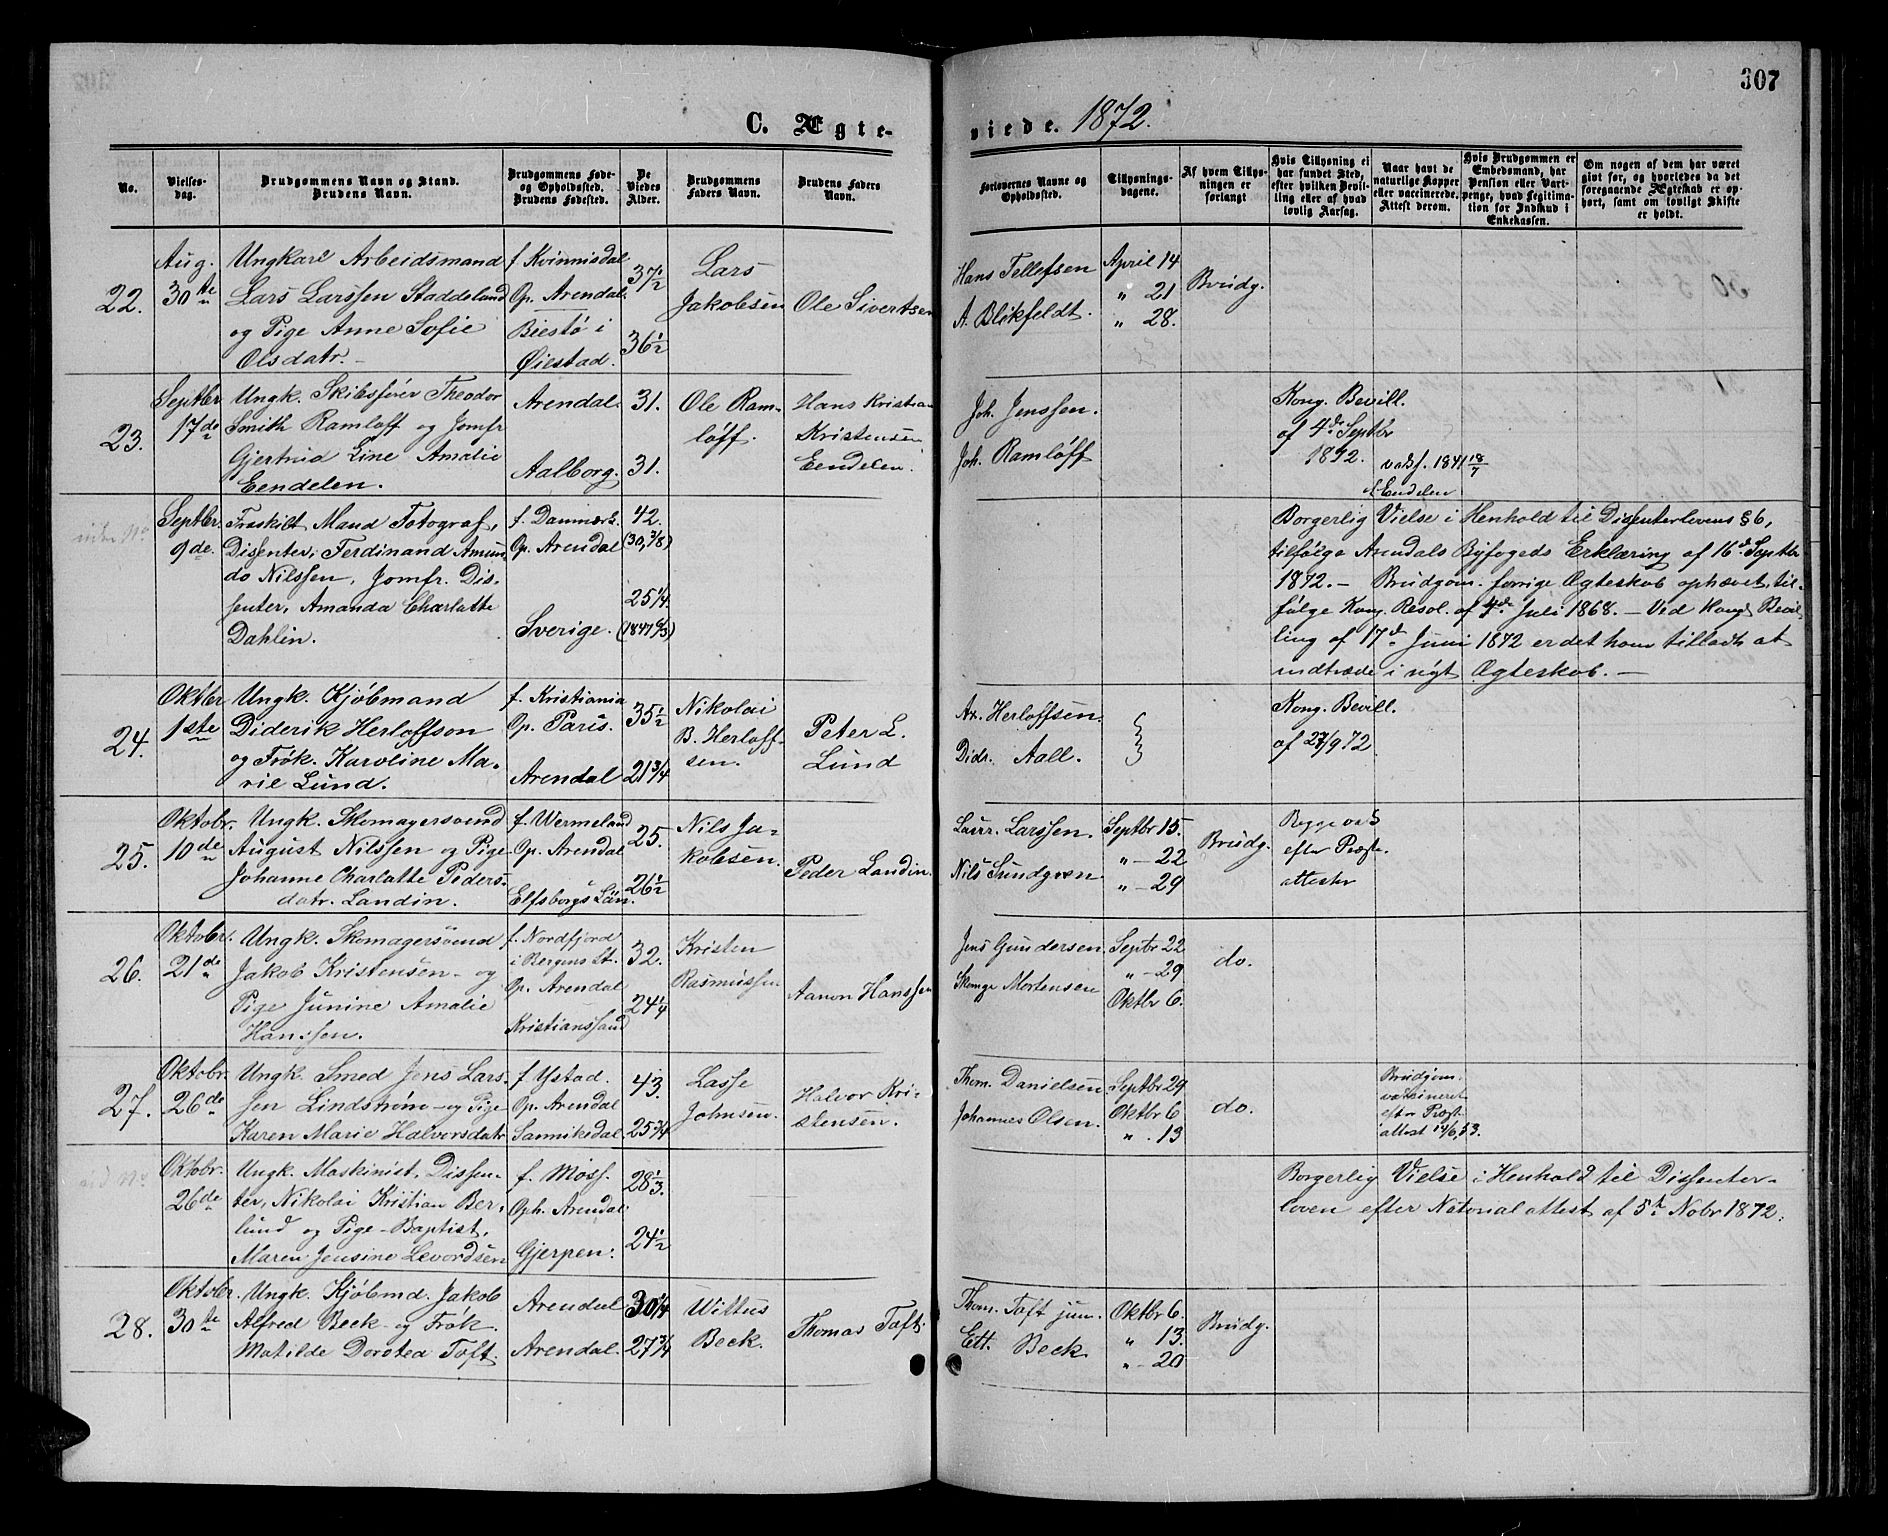 307
C. Ægte-
viede. 1872.
No.
Vielses-
dag.
Brudgommens Navn og Stand.
Brudens Navn.
Brudgommens Føde-
og Opholdssted.
Brudens Fødested.
De
Viedes
Alder.
Brudgommens
Faders Navn.
Brudens Faders
Navn.
Forlovernes Navne og
Opholdssted.
Tillysnings-
dagene.
Af hvem Tillys-
ningen er
forlangt
Hvis Tillysning ei
har fundet Sted,
efter hvilken Bevil-
ling eller af hvad
lovlig Aarsag.
Naar havt de
naturlige Kopper
eller vaccinerede.
Attest derom.
Hvis Brudgommen er
Embedsmand, har
Pension eller Vart-
penge, hvad Legitima-
tion for Indskud i
Enkekassen.
Om nogen af dem har været
gift før, og hvorledes da det
foregaaende Ægteskab er op-
hørt, samt om lovligt Skifte
er holdt.
22.
Aug.
30te
Ungkarl Arbeidsmand
Lars Larssen Staddeland
og Pige Anne Sofie
Olsdatr. –
f. Kvinnisdal
Op. Arendal.
Biestø i
Øiestad.
37 1/2
36 1/2
Lars
Jakobsen
Ole Sivertsen
Hans Tellefsen
A. Blikfeldt.
April 14
„ 21
„ 28.
Brudg.
23.
Septbr
17de
Ungk. Skibsfører Theodor
Smith Ramløff og Jomfr
Gjertrud Line Amalie
Eendelen.
Arendal.
Aalborg.
31.
31.
Ole Ram-
løff.
Hans Kristian
Kristensen
Eendelen.
Joh. Jenssen.
Joh. Ramløff
Kong. Bevill.
af 4de Septbr
1872.
vacs. 1841 18/7
f. Eendelen
Septbr.
9de.
Fraskilt Mand Fotograf,
Dissenter, Ferdinand Amun-
do Nilssen, Jomfr. Dis-
senter, Amanda Charlatte
Dahlin.
f. Danmark.
Op. Arendal
Sverige.
42.
(30,3/8)
25 1/4.
(1847 6/3)
Borgerlig Vielse i Henhold til Dissenterlovens § 6,
tilfølge Arendals Byfogeds Erklæring af 16de Septbr
1872. – Brudgom. forrige Ægteskab ophævet til-
følge Kong. Resol. af 4de Juli 1868. – Ved Kongl Bevil-
ling af 17de Juni 1872 er det ham tilladt at
indtræde i nyt Ægteskab. –
24.
Oktbr
1ste
Ungk. Kjøbmand
Diderik Herloffson
og Frøk. Karoline Ma-
rie Lund.
f. Kristiania
Op. Paris.
Arendal
35 1/2
21 3/4
Nikolai
B. Herloff-
sen.
Peter L.
Lund
Ax. Herloffsen.
Didr. Aall.
Kong. Bevill.
af 27/9 72
25.
Oktobr.
10de
Ungk. Skomagersvend
August Nilssen og Pige
Johanne Charlatte Peders-
datr. Landin.
f. Wermeland
Op. Arendal
Elfsborgs Län.
25.
26 1/2
Nils Ja-
kobsen.
Peder Landin.
Laur. Larssen.
Nils Sundgren.
Septbr 15.
„ – 22
„ – 29
Brudg.
Begge vacs
efter Præste-
attester
26.
Oktobr.
21de
Ungk. Skomagersvend
Jakob Kristensen – og
Pige Junine Amalie
Hanssen.
f. Nordfjord
i Bergens St.
Op. Arendal
Kristianssand
32.
24 1/4
Kristen
Rasmussen
Aanon Hanssen
Jens Gundersen
Skomgr Mortensen
Septbr 22
„ – 29
Oktbr 6.
do.
27.
Oktobr.
26de
Ungk. Smed Jens Lars-
sen Lindstrøm – og Pige
Karen Marie Halvorsdatr
f. Ystad.
Op. Arendal
Sannikedal
43.
25 3/4
Lasse
Johnsen.
Halvor Kri-
stensen.
Thom. Danielsen
Johannes Olsen.
Septbr 29
Oktbr 6
„ . 13
do.
Brudgom.
vaccineret
efter Præst
attest 14/6, 53.
Oktobr.
26de
Ungk. Maskinist, Dissen-
ter, Nikolai Kristian Ber-
lund og Pige – Baptist,
Maren Jensine Levordsen
f. Moss.
Oph. Arendal.
Gjerpen.
28 1/3.
24 1/2
Borgerlig Vielse i Henhold til Dissenter-
loven efter Notorial attest af 5te Nobr 1872.
28.
Oktobr.
30te
Ungk. Kjøbmd. Jakob
Alfred Beck – og Frøk.
Matilde Dorotea Toft.
Arendal
Arendal.
30 1/4
27 3/4
Wittus
Beck.
Thomas Toft.
Thom. Toft jun.
Ett. Beck
Oktbr 6.
„ 13.
„ – 20
Brudg.